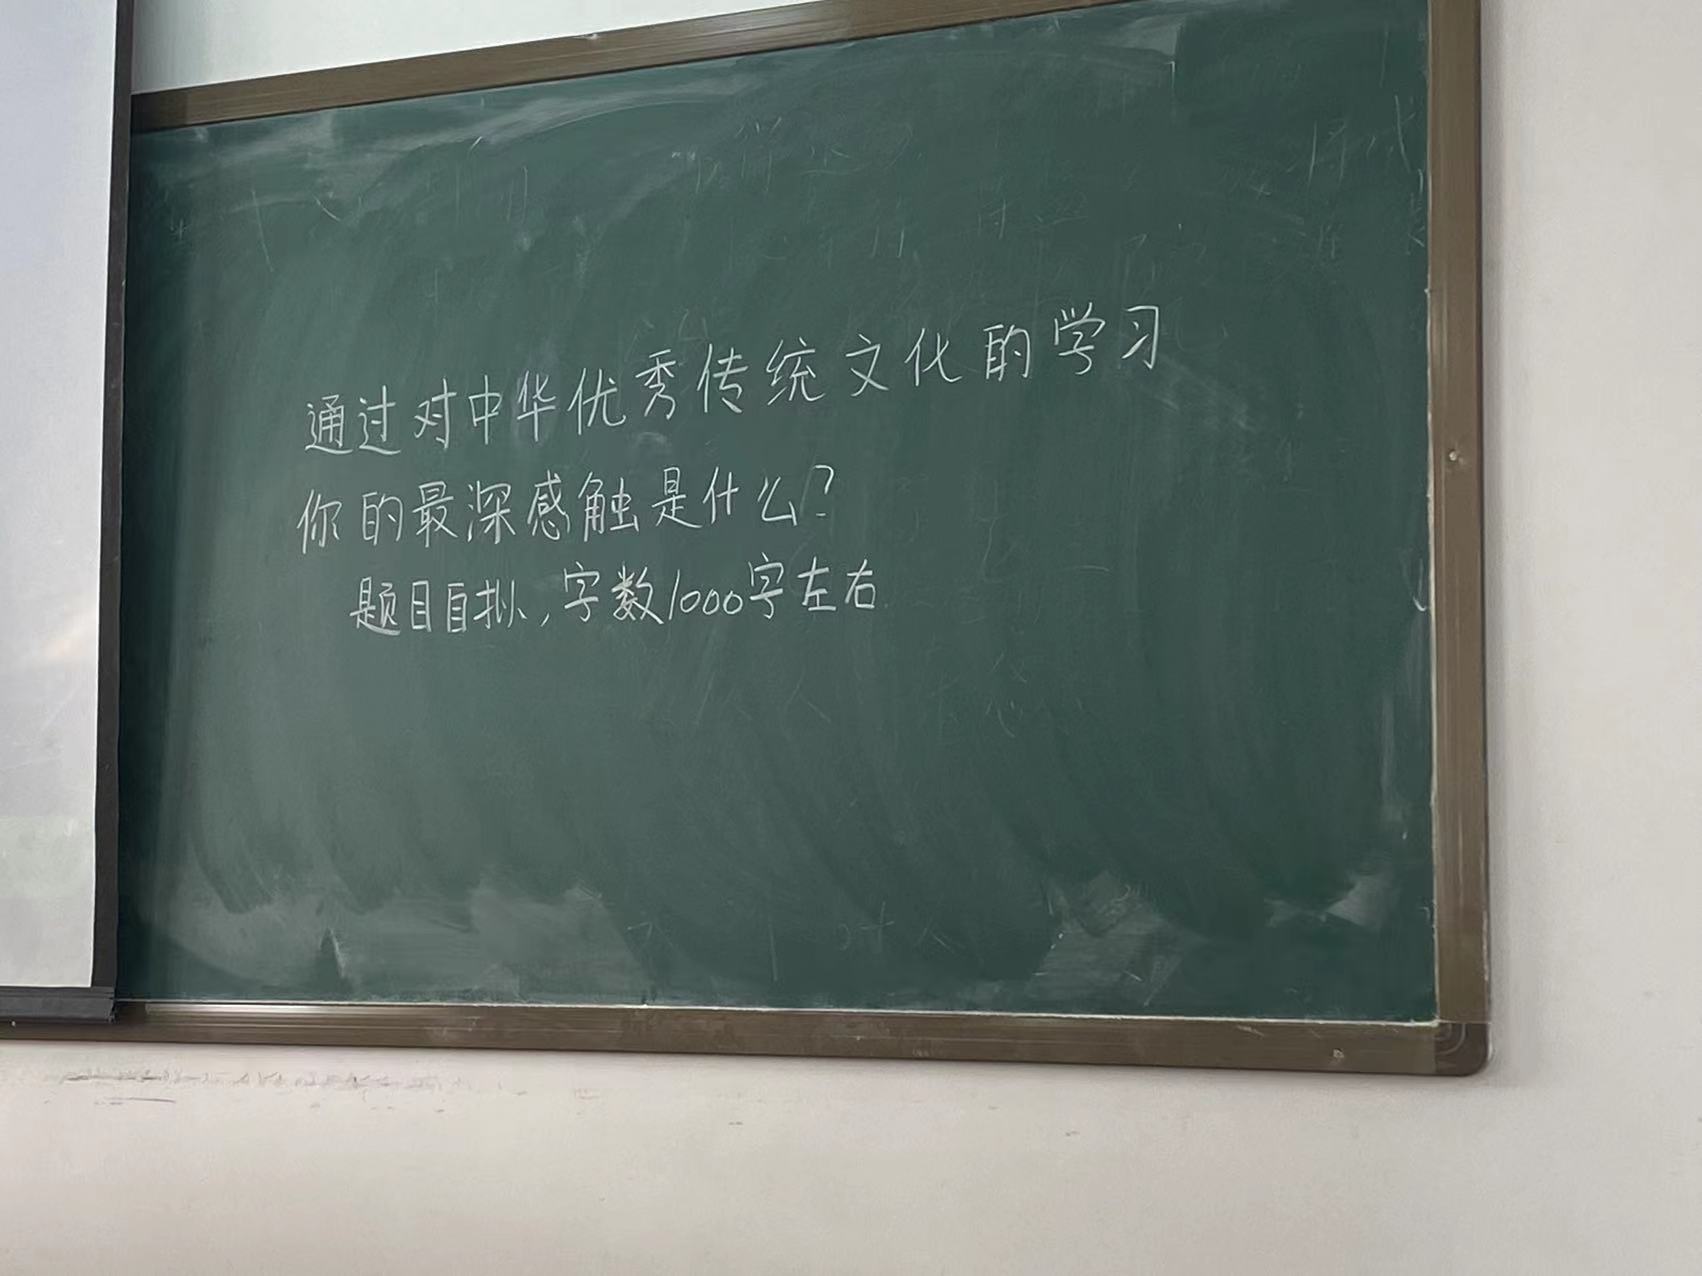 通过对中华优秀传统文化的学习
你的最深感触是什么?
题目自拟,字数1000字左右